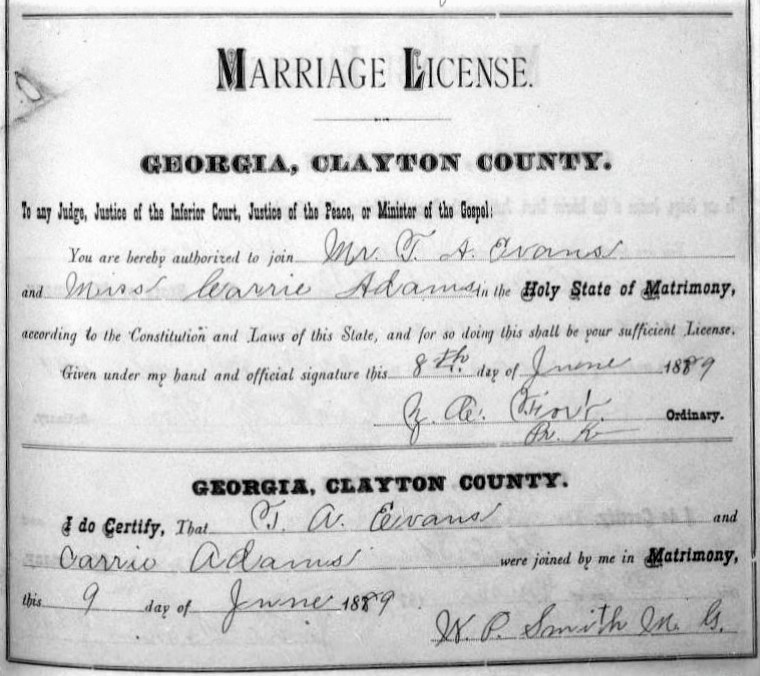 MARRIAGE LICENSE.
GEORGIA, CLAYTON COUNTY.
To any Judge, Justice of the Inferior Court, Justice of the Peace, or Minister of the Gospel:
You are hereby authorized to join Mr. T. A. Evans
and Miss Carrie Adams in the Holy State of Matrimony,
according to the Constitution and Laws of this State, and for so doing this shall be your sufficient License.
Given under my hand and official signature this 8th. day of June 1889
Ordinary.
GEORGIA, CLAYTON COUNTY.
I do Certify, That T. A. Evans and
Carrie Adams were joined by me in Matrimony,
this 9 day of June 1889
W. P. Smith M. G.